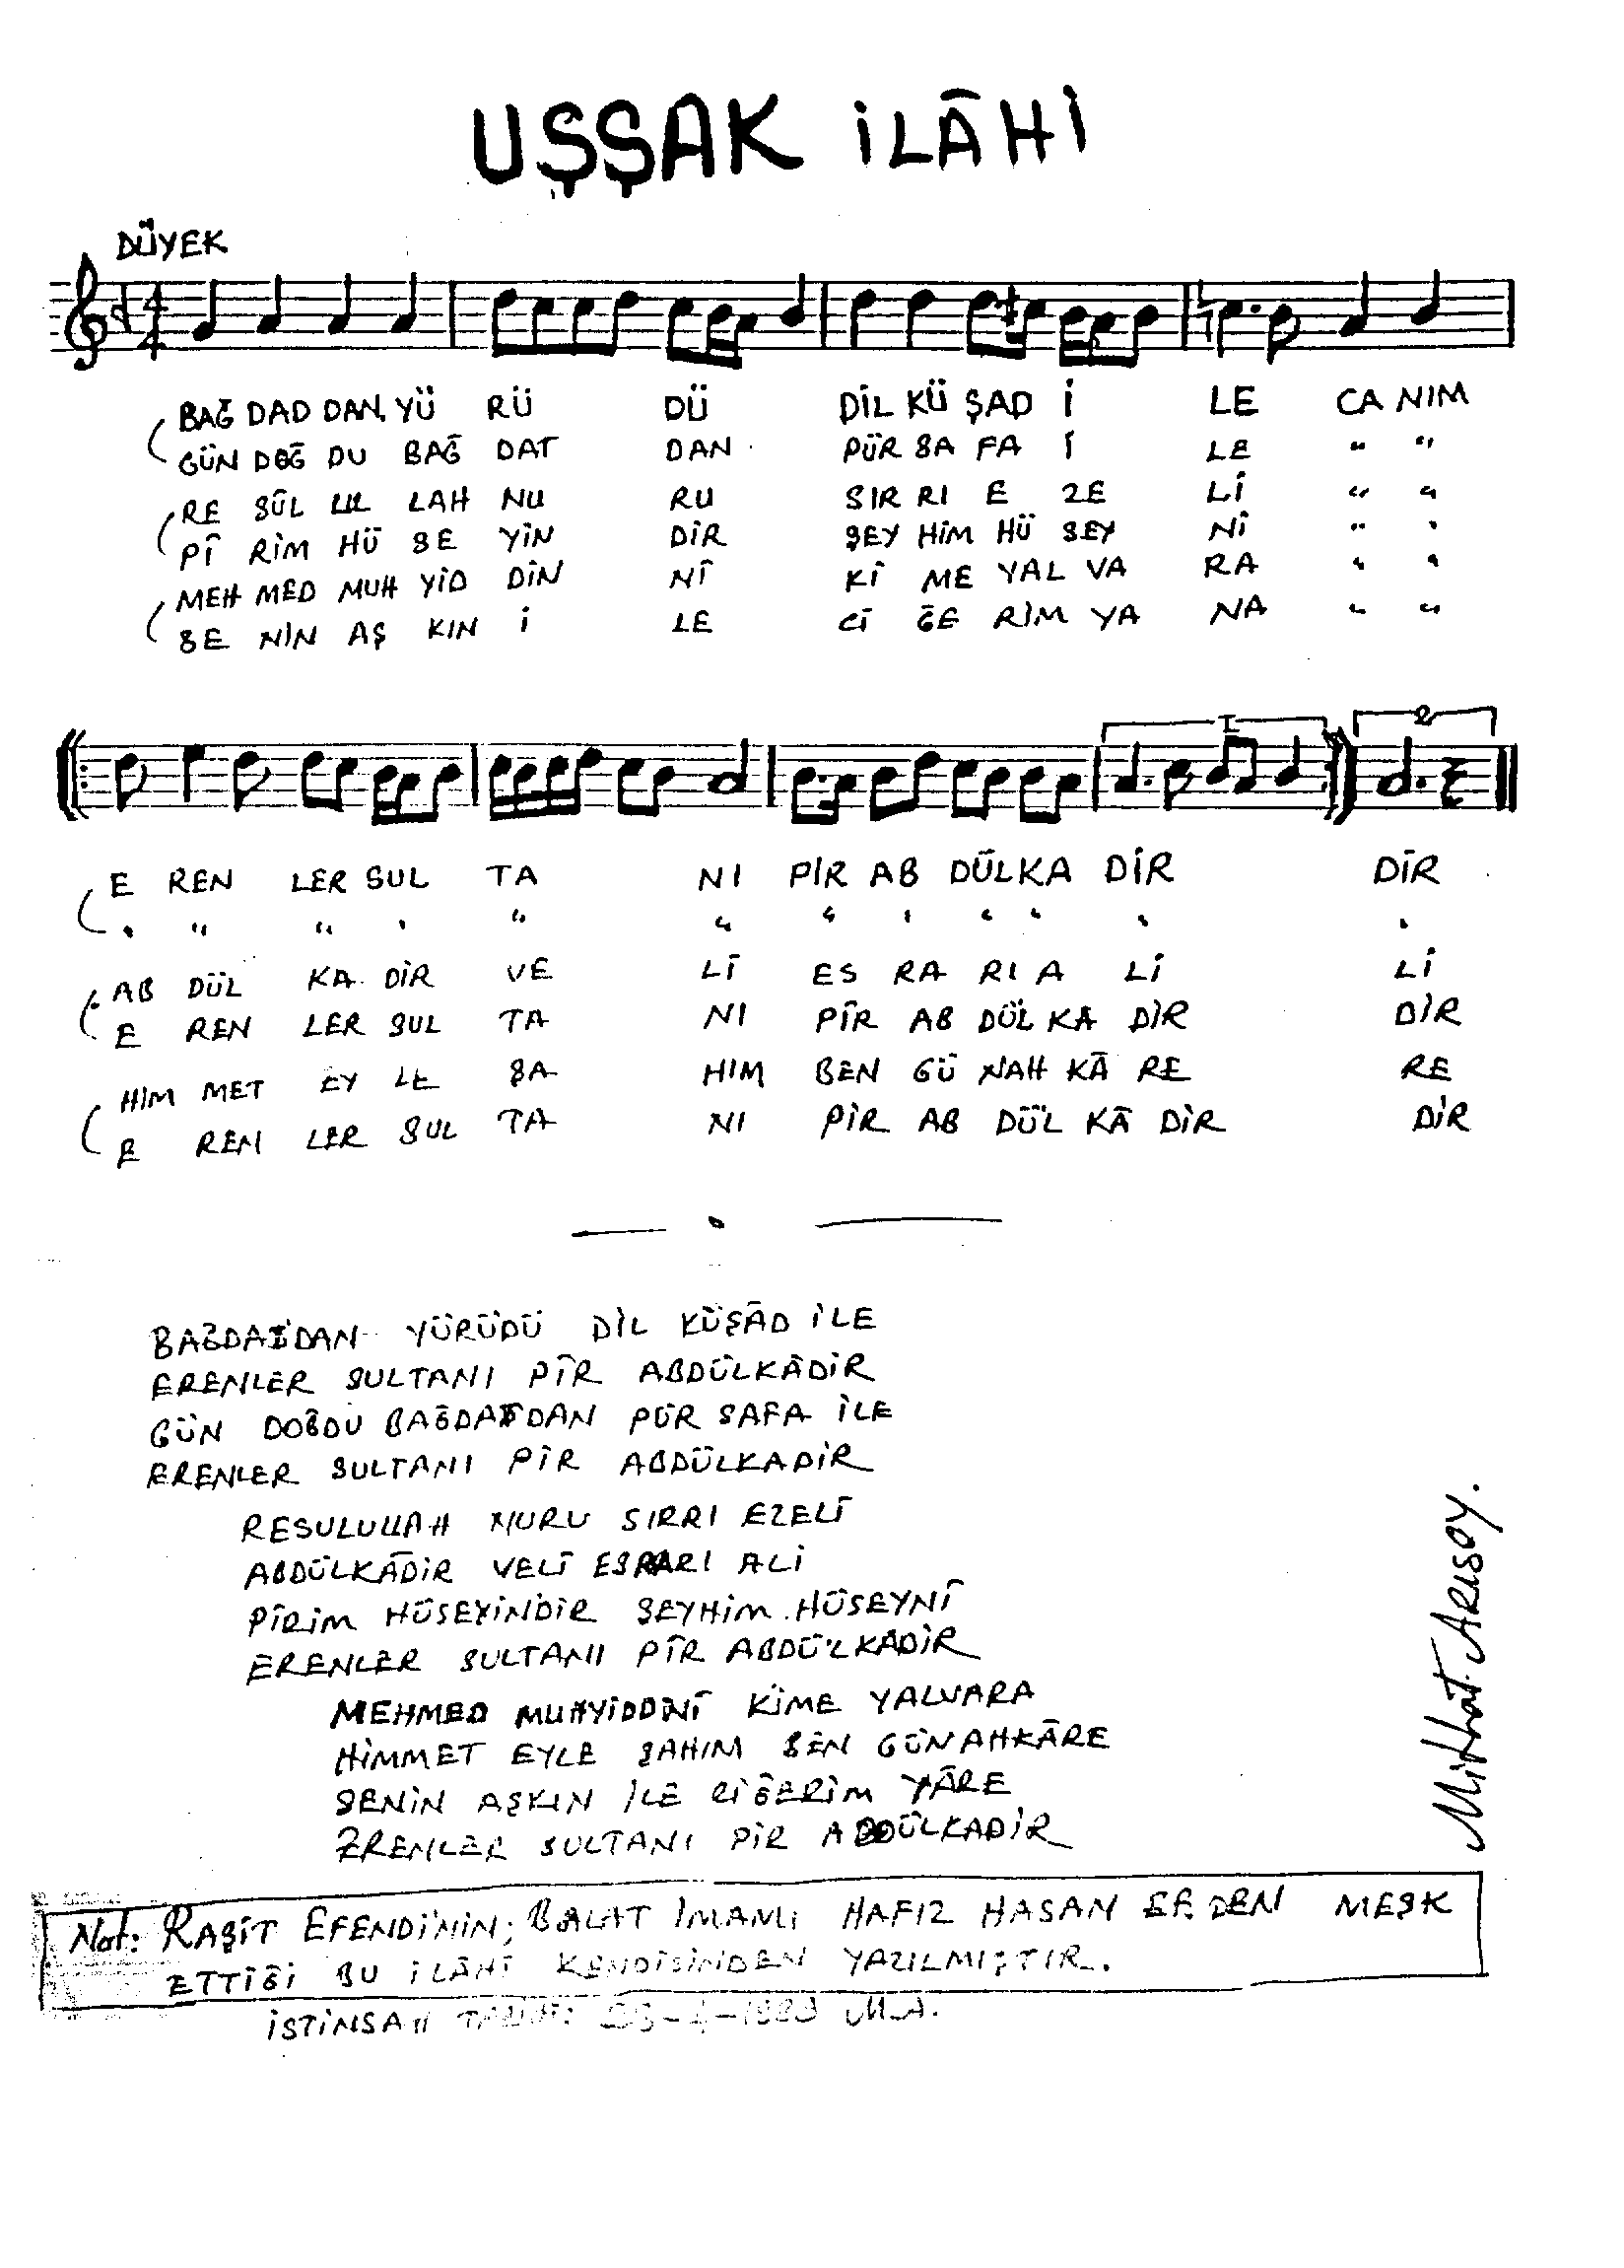 UŞŞAK İLÂHİ
DÜYEK
4
4
BAĞ DAD DAN YÜ RÜ DÜ DİL KÜ ŞAD İ LE CA NIM
GÜN DOĞ DU BAĞ DAT DAN PÜR SA FA İ LE " "
RE SÛL LUL LAH NU RU SIR RI E ZE LÎ " "
PÎ RİM HÜ SE YİN DİR ŞEY HİM HÜ SEY NÎ " "
MEH MED MUH YİD DİN NÎ KÎ ME YAL VA RA " "
SE NİN AŞ KIN İ LE Cİ ĞE RİM YA NA " "
I 2
E REN LER SUL TA NI PİR AB DÜL KA DİR DİR
" " " " " " " " " " " "
AB DÜL KA DİR VE LÎ ES RA RI A Lİ Lİ
E REN LER SUL TA NI PÎR AB DÜL KA DİR DİR
HİM MET EY LE ŞA HIM BEN GÜ NAH KÂ RE RE
E REN LER SUL TA NI PİR AB DÜL KÂ DİR DİR
BAĞDAD'DAN YÜRÜDÜ DİL KÜŞÂD İLE
ERENLER SULTANI PÎR ABDÜLKÂDİR
GÜN DOĞDU BAĞDAT'DAN PÜR SAFA İLE
ERENLER SULTANI PİR ABDÜLKADİR
RESULULLAH NURU SIRRI EZELÎ
ABDÜLKÂDİR VELÎ ESRARI ALİ
PÎRİM HÜSEYİNDİR ŞEYHİM HÜSEYNÎ
ERENLER SULTANI PÎR ABDÜLKADİR
MEHMED MUHYİDDİNÎ KİME YALVARA
HİMMET EYLE ŞAHIM BEN GÜNAHKÂRE
SENİN AŞKIN İLE CİĞERİM YÂRE
ERENLER SULTANI PİR ABDÜLKADİR
Mithat Arısoy.
Not: RAŞİT EFENDİ'NİN; BALAT İMAMI HAFIZ HASAN EF. DEN MEŞK
ETTİĞİ BU İLÂHİ KENDİSİNDEN YAZILMIŞTIR.
İSTİNSAH TARİHİ: M.A.